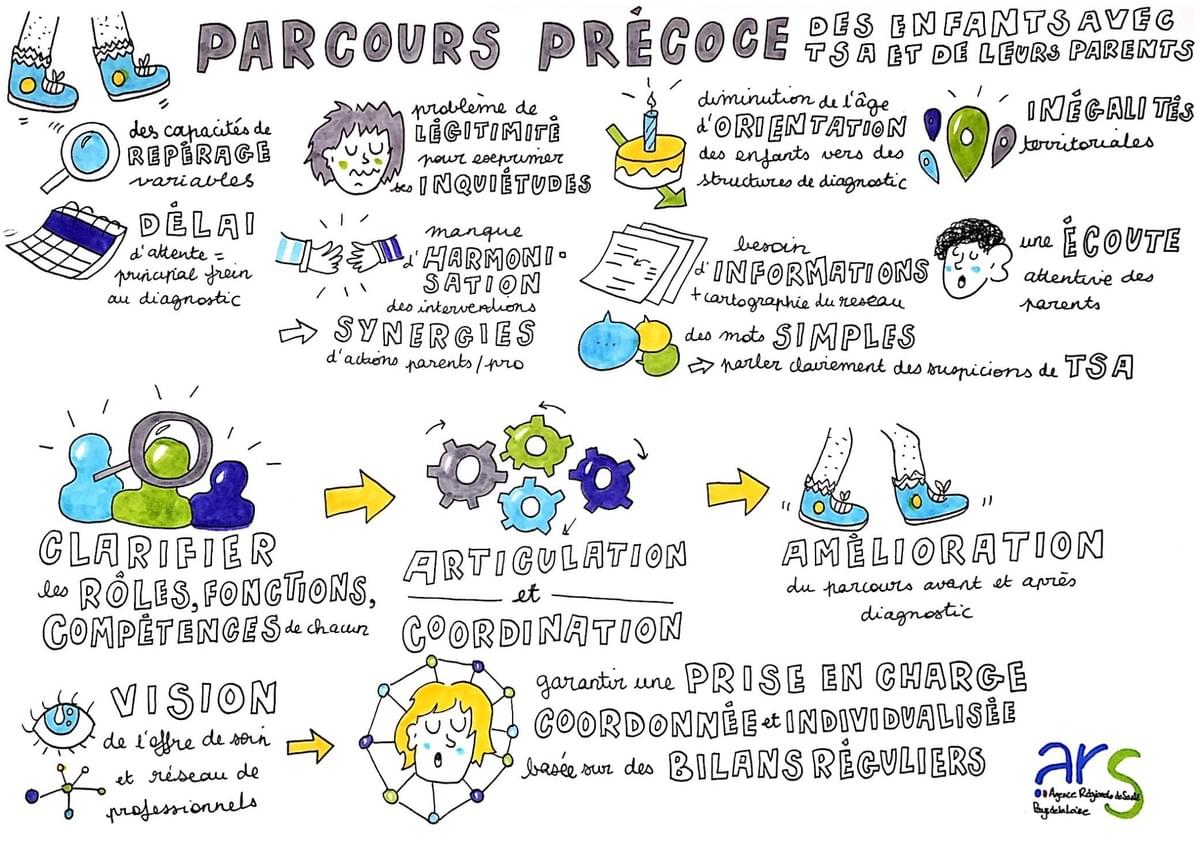 PARCOURS PRÉCOCE
DES ENFANTS AVEC
TSA ET DE LEURS PARENTS
des capacités de
REPÉRAGE
variables
problème de
LÉGITIMITÉ
pour exprimer
ses INQUIÉTUDES
diminution de l'âge
d'ORIENTATION
des enfants vers des
structures de diagnostic
INÉGALITÉS
territoriales
DÉLAI
d'attente =
principal frein
au diagnostic
manque
d'HARMONI-
SATION
des interventions
SYNERGIES
d'actions parents/pro
besoin
d'INFORMATIONS
+ cartographie du réseau
une ÉCOUTE
attentive des
parents
des mots SIMPLES
parler clairement des suspicions de TSA
CLARIFIER
les RÔLES, FONCTIONS,
COMPÉTENCES de chacun
ARTICULATION
et
COORDINATION
AMÉLIORATION
du parcours avant et après
diagnostic
VISION
de l'offre de soin
et réseau de
professionnels
garantir une PRISE EN CHARGE
COORDONNÉE et INDIVIDUALISÉE
basée sur des BILANS RÉGULIERS
ars
Agence Régionale de Santé
Pays de la Loire